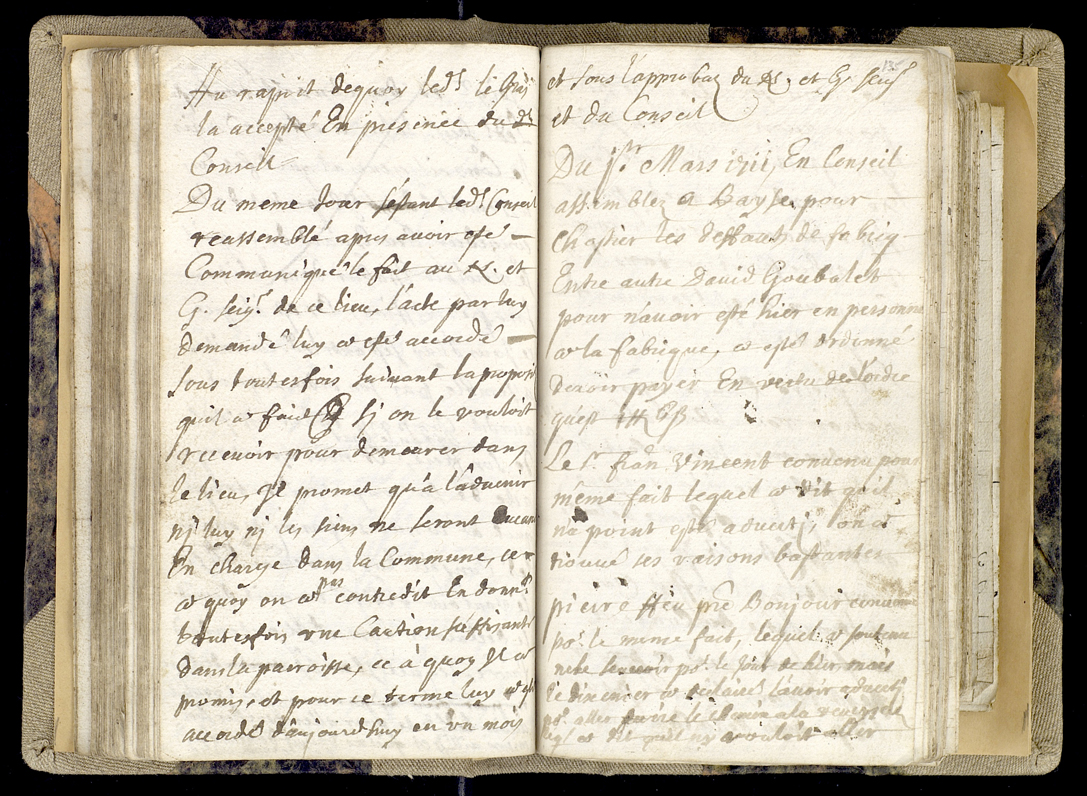 Au rapport dequoy led.t le
la accepté En presence du dt
Conseil
Du meme Jour estant led.t Conseil
reassemblé apres avoir esté
Communiqué le fait au N. et
G. seig.r de ce lieu, l'acte par luy
demandé luy a esté accordé
sous toutesfois suivant la proposit
quil a faict Sj on le vouloit
recevoir pour demeurer dans
le lieu, Jl promet qu'a l'advenir
nj luy nj les siens ne seront aucun
En charge dans la Commune,
a quoy on a pas contredit En donn.t
toutesfois vne Caution suffisante
dans la parroisse, ce à quoy Jl a
promis, et pour ce terme luy a esté
accordé d'aujourdhuy en vn mois
135
et sous l'approbaō du N. et G. seig.r
et du Conseil
Du j.er Mars 1711, En Conseil
assemblez a Bayse pour
Chastier les deffauts de fabriq
Entre autre David Goubalet
pour n'avoir esté hier en personne
a la fabrique, a esté ordonné
devoir payer En vertu de l'ordre
quest
Le S.r fran Vincent convenu pour
même fait lequel a dit qu'il
n'a point esté advertj, on a
trouvé ses raisons bastantes
pierre ffeu pre Bonjour convenu
po.r le meme fait, lequel a soutenu
ne le scavoir po.r le Jour de hier mais
le dixenier a declairé l'avoir advertj
po.r aller faire le chemin a la
a dit quil ny vouloit aller